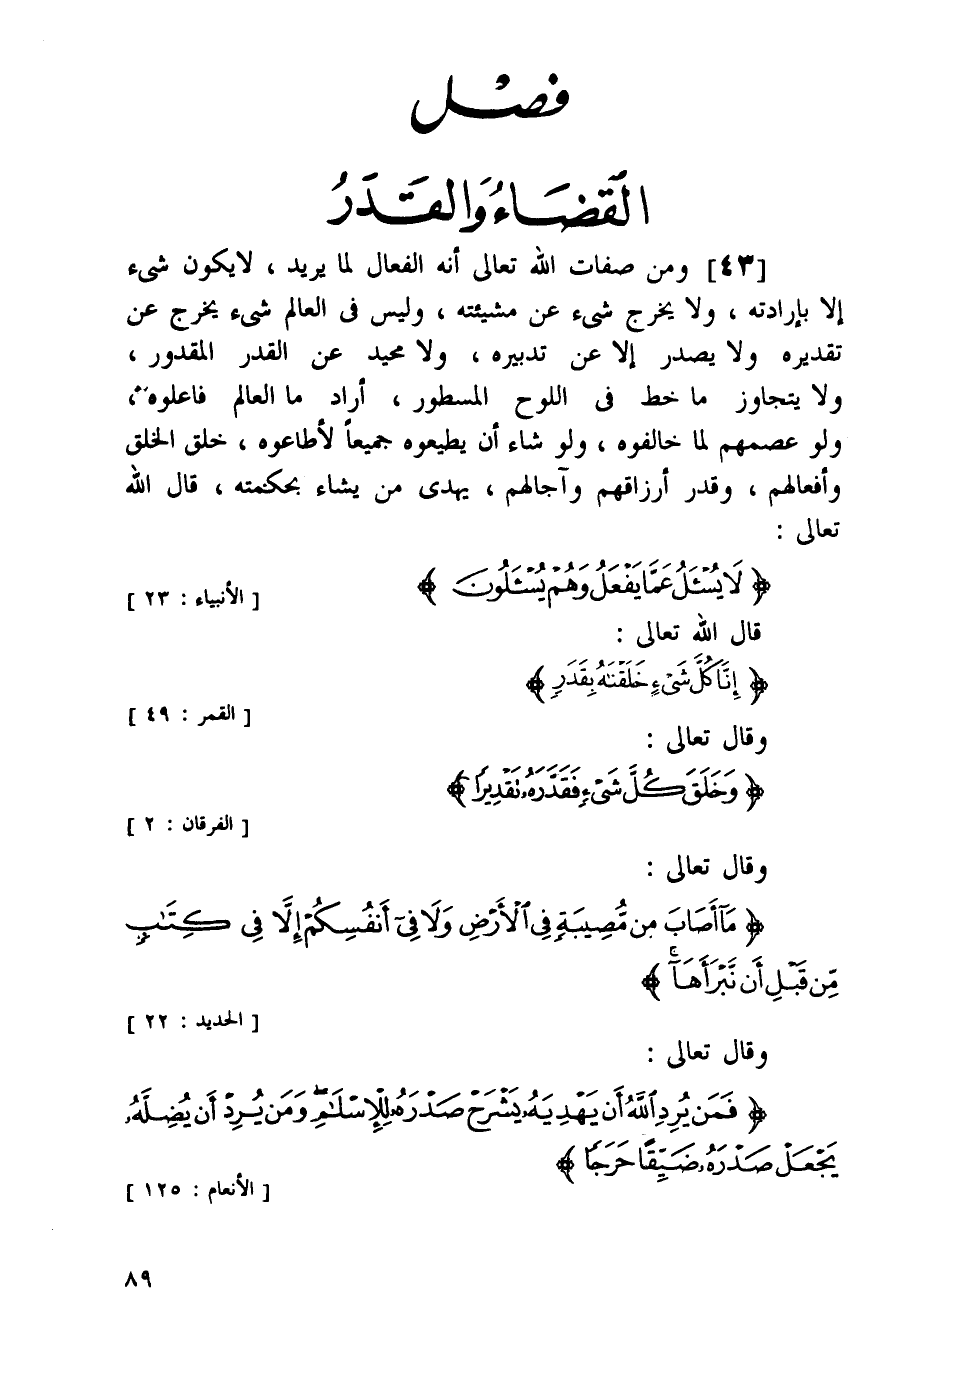 فصل
القضاء والقدر
[٤٣] ومن صفات الله تعالى أنه الفعال لما يريد ، لايكون شىء
إلا بإرادته ، ولا يخرج شىء عن مشيئته ، وليس فى العالم شىء يخرج عن
تقديره ولا يصدر إلا عن تدبيره ، ولا محيد عن القدر المقدور ،
ولا يتجاوز ما خط فى اللوح المسطور ، أراد ما العالم فاعلوه ،
ولو عصمهم لما خالفوه ، ولو شاء أن يطيعوه جميعاً لأطاعوه ، خلق الخلق
وأفعالهم ، وقدر أرزاقهم وآجالهم ، يهدى من يشاء بحكمته ، قال الله
تعالى :
﴿ لَا يُسْـَٔلُ عَمَّا يَفْعَلُ وَهُمْ يُسْـَٔلُونَ ﴾
[ الأنبياء : ٢٣ ]
قال الله تعالى :
﴿ إِنَّا كُلَّ شَىْءٍ خَلَقْنَٰهُ بِقَدَرٍ ﴾
[ القمر : ٤٩ ]
وقال تعالى :
﴿ وَخَلَقَ كُلَّ شَىْءٍ فَقَدَّرَهُۥ تَقْدِيرًا ﴾
[ الفرقان : ٢ ]
وقال تعالى :
﴿ مَآ أَصَابَ مِن مُّصِيبَةٍ فِى ٱلْأَرْضِ وَلَا فِىٓ أَنفُسِكُمْ إِلَّا فِى كِتَٰبٍ
مِّن قَبْلِ أَن نَّبْرَأَهَآ ۚ ﴾
[ الحديد : ٢٢ ]
وقال تعالى :
﴿ فَمَن يُرِدِ ٱللَّهُ أَن يَهْدِيَهُۥ يَشْرَحْ صَدْرَهُۥ لِلْإِسْلَٰمِ ۖ وَمَن يُرِدْ أَن يُضِلَّهُۥ
يَجْعَلْ صَدْرَهُۥ ضَيِّقًا حَرَجًا ﴾
[ الأنعام : ١٢٥ ]
٨٩